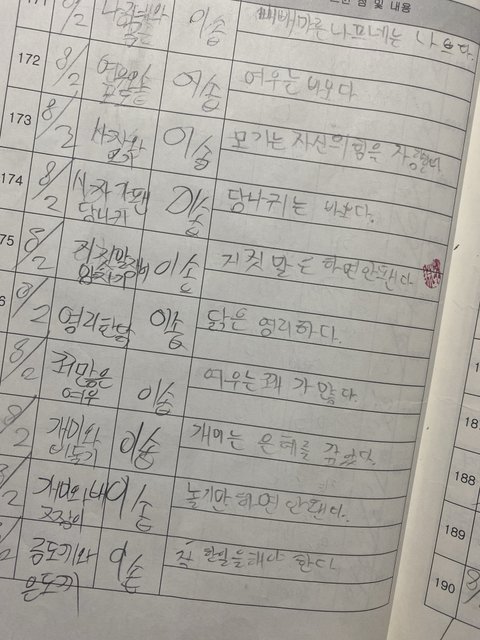 점 및 내용
171 8/2 나그네와 곰은 이솝 삐빼마른 나그네는 나쁘다.
172 8/2 여우와 이솝 여우는 바보다
173 8/2 사자와 모기 이솝 모기는 자신의 힘을 자랑한다
174 8/2 사자가 된 당나귀 이솝 당나귀는 바보다.
75 8/2 거짓말쟁이 양치기 이솝 거짓말은 하면안됀다
6 8/2 영리한닭 이솝 닭은 영리하다.
8/2 꾀많은 여우 이솝 여우는꾀 가많다.
8/2 개미와 비둘기 이솝 개미는 은혜를 갚았다.
8/2 개미와베 짱이 이솝 놀기만하면 안됀다.
/2 금도끼와 은도끼 이솝 착한일을해야 한다.
18
188
189
190 8/